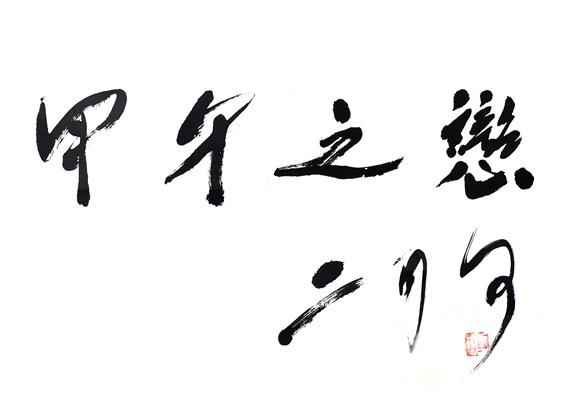 甲午之戀
二月河